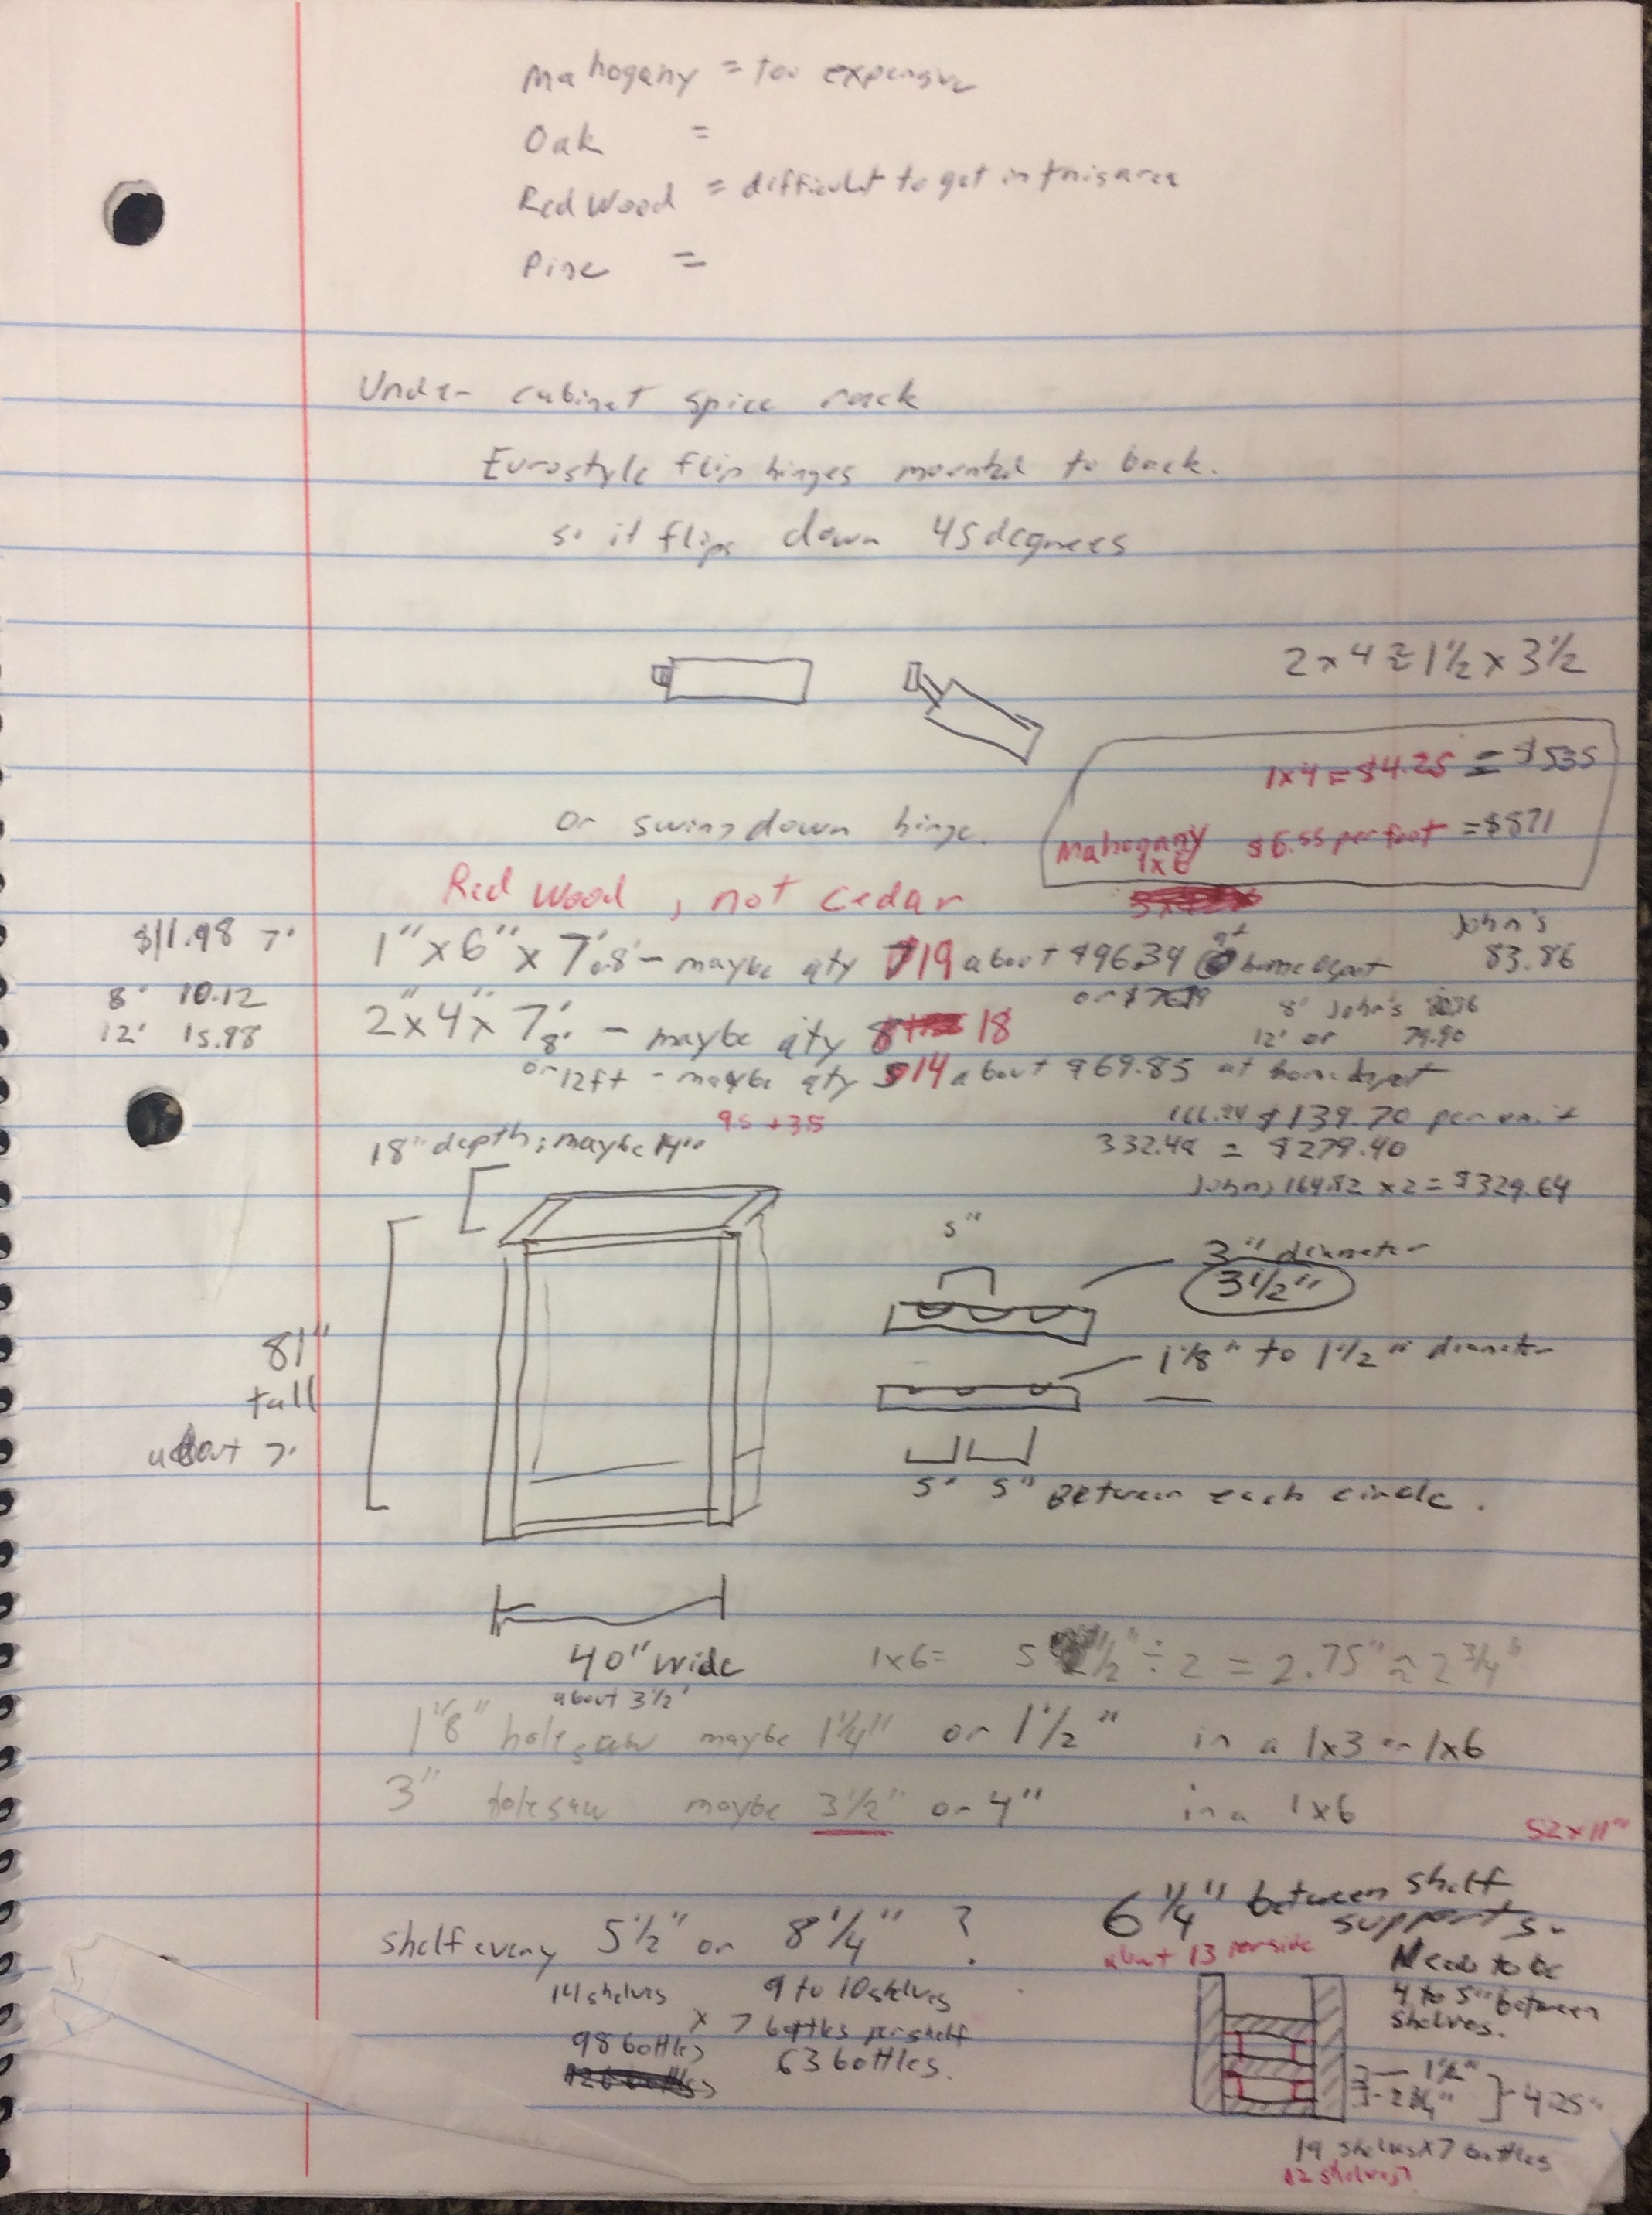 Mahogany = too expensive
Oak =
Red Wood = difficult to get in this area
Pine =
Under cabinet spice rack
Eurostyle flip hinges mounted to back.
so it flips down 45 degrees
2x4 ≈ 1 1/2 x 3 1/2
1x4 = $4.25 = $535
or swing down hinge.
Mahogany 1x6 $6.55 per foot = $871
Red Wood, not cedar
$11.98 7'
1" x 6" x 7' or 8' - maybe qty 19 about $96.39 @ home depot
John's
83.86
8' 10.12
or $76.19
8' John's
12' 15.98
2" x 4" x 7' 8' - maybe qty 18
12' or 79.90
or 12ft - maybe qty 14 about $69.85 at home depot
95 + 35
166.24 $139.70 per unit
18" depth; maybe 14"
332.48 = $279.40
John's 164.82 x 2 = $329.64
5"
3" diameter
3 1/2"
81"
tall
about 7'
1 1/8" to 1 1/2" diameter
5" 5" Between each circle.
40" wide
about 3 1/2'
1x6 = 5 1/2" ÷ 2 = 2.75" ≈ 2 3/4"
1 1/8" hole saw maybe 1 1/4" or 1 1/2" in a 1x3 or 1x6
3" hole saw maybe 3 1/2" or 4" in a 1x6
52x11"
6 1/4" between shelf
supports.
shelf every 5 1/2" or 8 1/4" ?
about 13 per side
14 shelves 9 to 10 shelves
x 7 bottles per shelf
98 bottles 63 bottles.
Needs to be
4 to 5" between
shelves.
1 1/2"
2 3/4"
4.25"
19 shelves x 7 bottles
12 shelves?